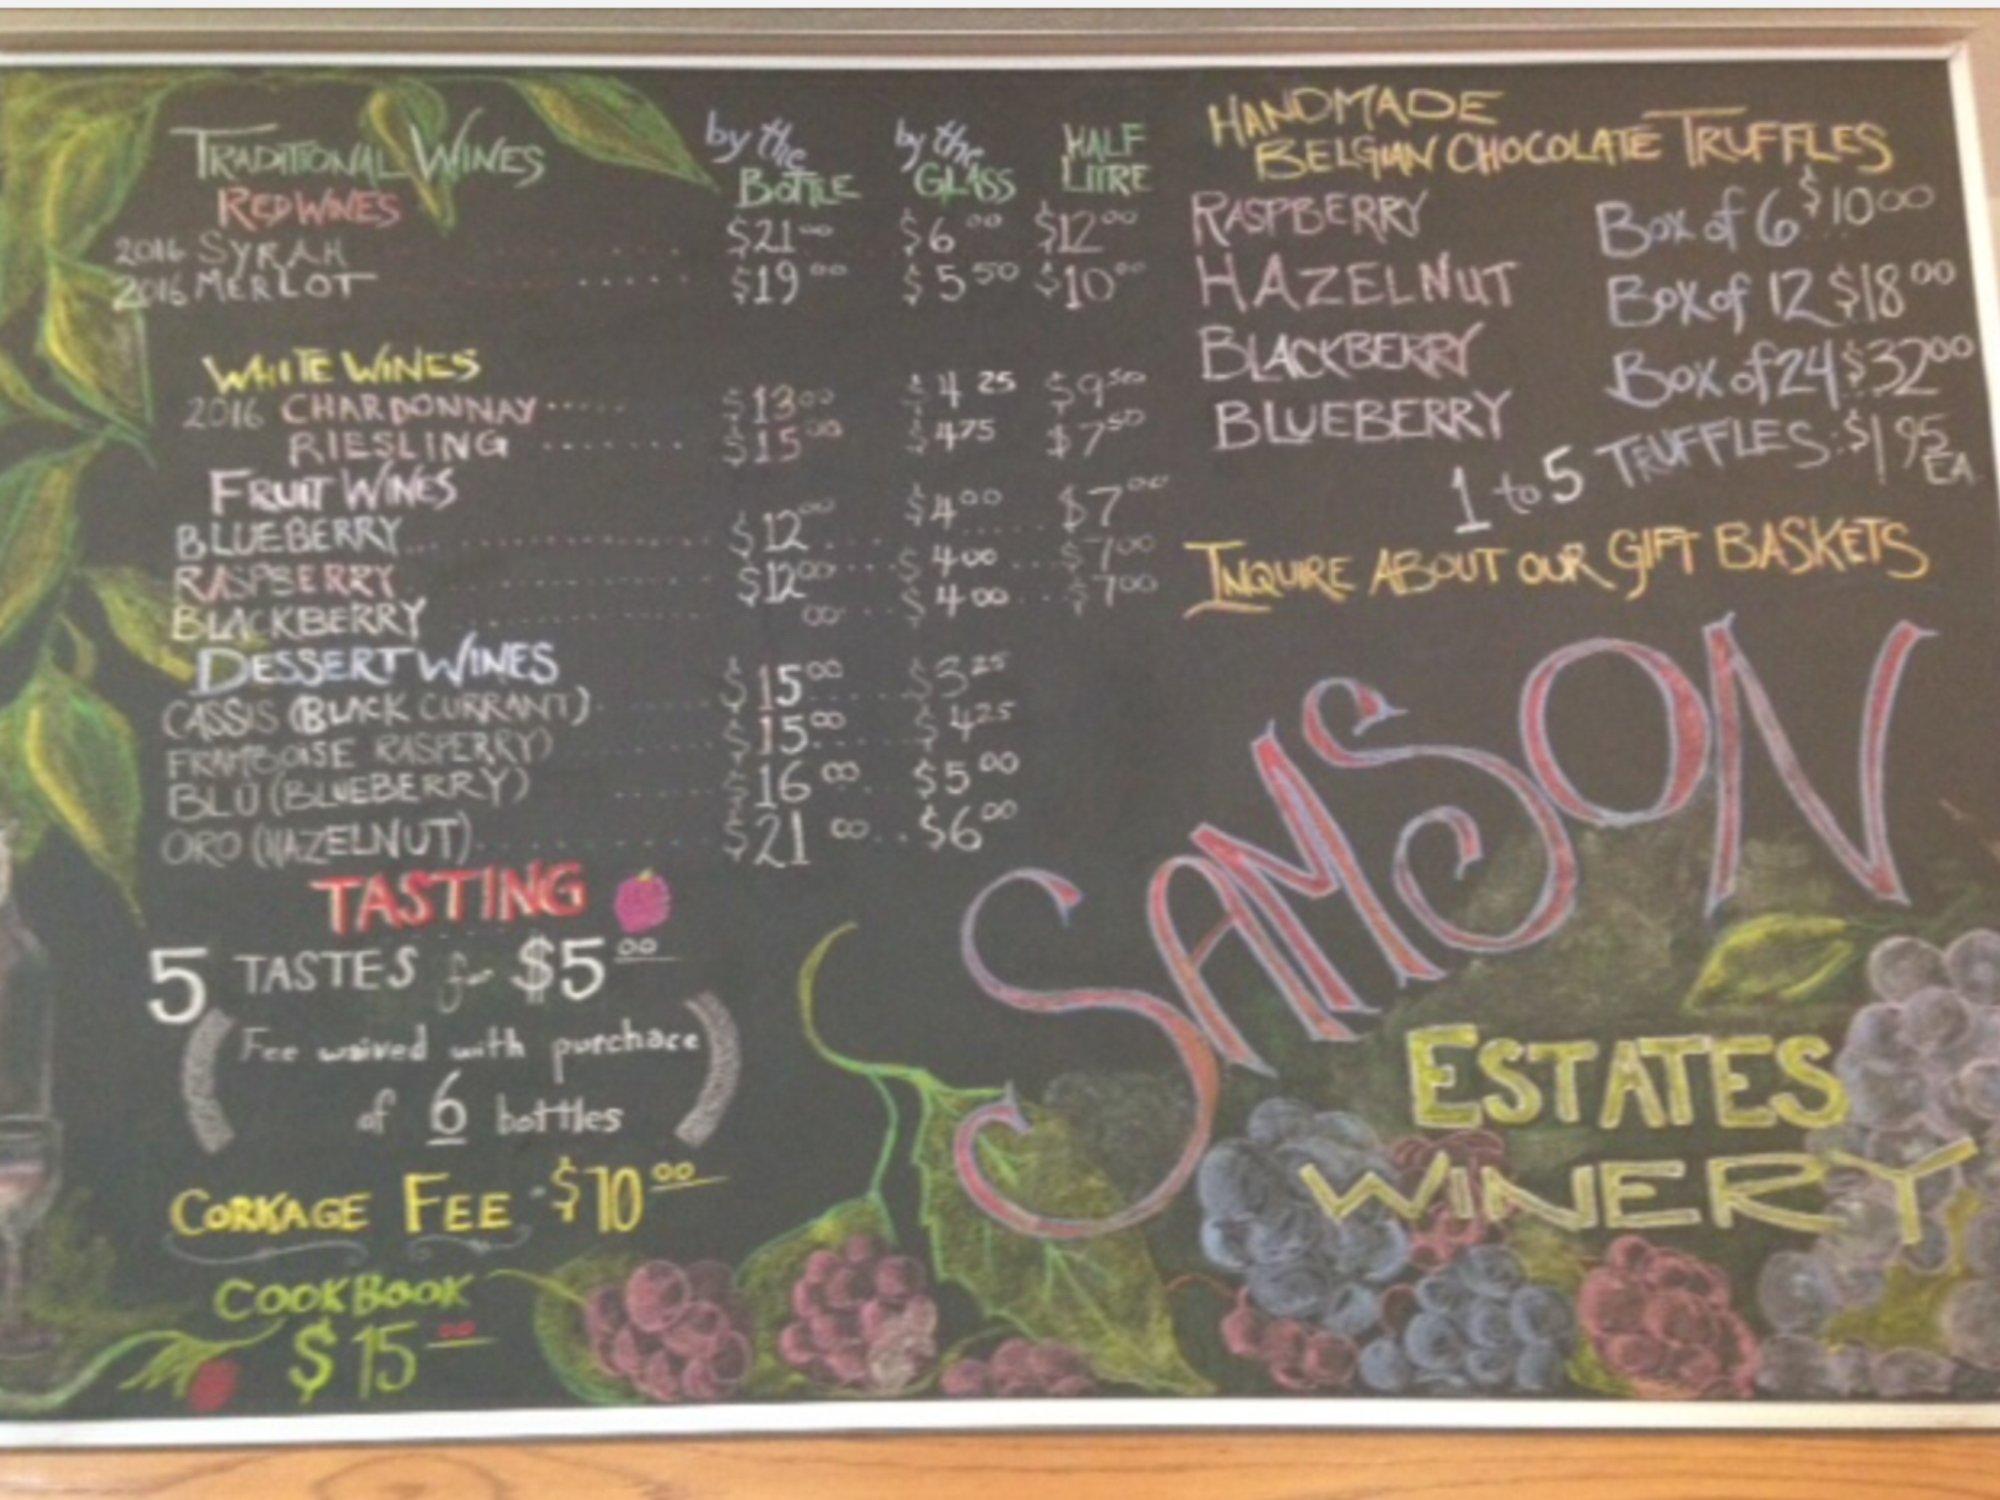 TRADITIONAL WINES by the BOTTLE by the GLASS HALF LITRE
RED WINES
2016 SYRAH $21 00 $6 00 $12 00
2016 MERLOT $19 00 $5 50 $10 00
WHITE WINES
2016 CHARDONNAY $13 00 $4 25 $9 50
RIESLING $15 00 $4 75 $7 50
FRUIT WINES
BLUEBERRY $12 00 $4 00 $7 00
RASPBERRY $12 00 $4 00 $7 00
BLACKBERRY 00 $4 00 $7 00
DESSERT WINES
CASSIS (BLACK CURRANT) $15 00 $3 25
FRAMBOISE RASPERRY) $15 00 $4 25
BLU (BLUEBERRY) $16 00 $5 00
ORO (HAZELNUT) $21 00 $6 00
TASTING
5 TASTES for $5 00
(Fee waived with purchace
of 6 bottles)
CORKAGE FEE $10 00
COOKBOOK
$15 00
HANDMADE
BELGIAN CHOCOLATE TRUFFLES
RASPBERRY Box of 6 $10 00
HAZELNUT Box of 12 $18 00
BLACKBERRY Box of 24 $32 00
BLUEBERRY
1 to 5 TRUFFLES: $1 95 EA
INQUIRE ABOUT OUR GIFT BASKETS
SAMSON
ESTATES
WINERY